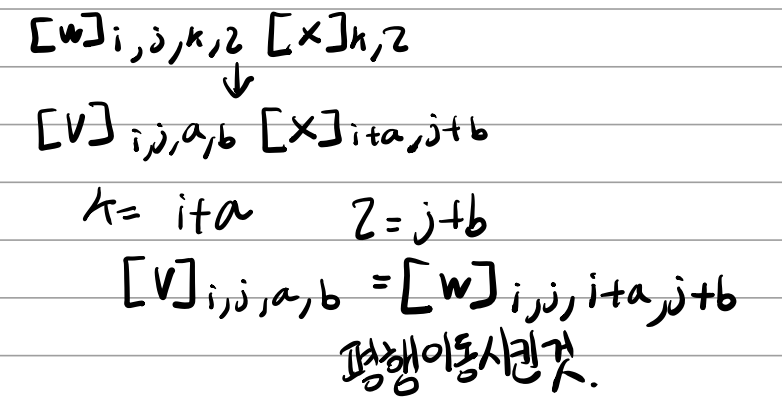 [W]i,j,k,2 [X]k,2
↓
[V]i,j,a,b [X]i+a,j+b
k= i+a 2=j+b
[V]i,j,a,b = [W]i,j,i+a,j+b
평행이동시킨것.